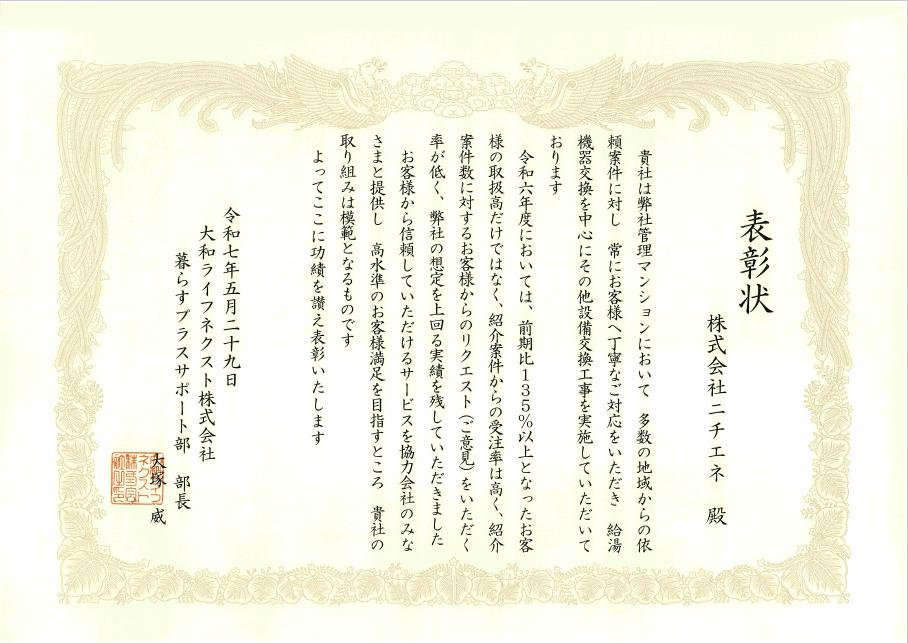 表彰状
株式会社ニチエネ 殿
貴社は弊社管理マンションにおいて 多数の地域からの依
頼案件に対し 常にお客様へ丁寧なご対応をいただき 給湯
機器交換を中心にその他設備交換工事を実施していただいて
おります
令和六年度においては、前期比135%以上となったお客
様の取扱高だけではなく、紹介案件からの受注率は高く、紹介
案件数に対するお客様からのリクエスト(ご意見)をいただく
率が低く、弊社の想定を上回る実績を残していただきました
お客様から信頼していただけるサービスを協力会社のみな
さまと提供し 高水準のお客様満足を目指すところ 貴社の
取り組みは模範となるものです
よってここに功績を讃え表彰いたします
令和七年五月二十九日
大和ライフネクスト株式会社
暮らすプラスサポート部 部長
大塚 威